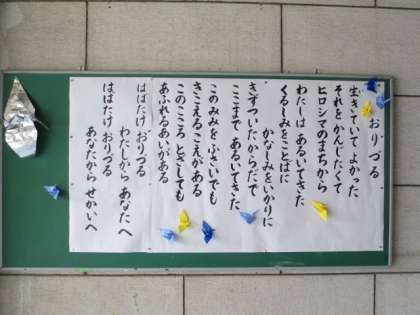 おりづる
生きていて よかった
それを かんじたくて
ヒロシマのまちから
わたしは あるいてきた
くるしみをことばに
かなしみをいかりに
きずついたからだで
ここまで あるいてきた
このみみをふさいでも
きこえるこえがある
このこころ とざしても
あふれるあいがある
はばたけ おりづる
わたしから あなたへ
はばたけ おりづる
あなたから せかいへ